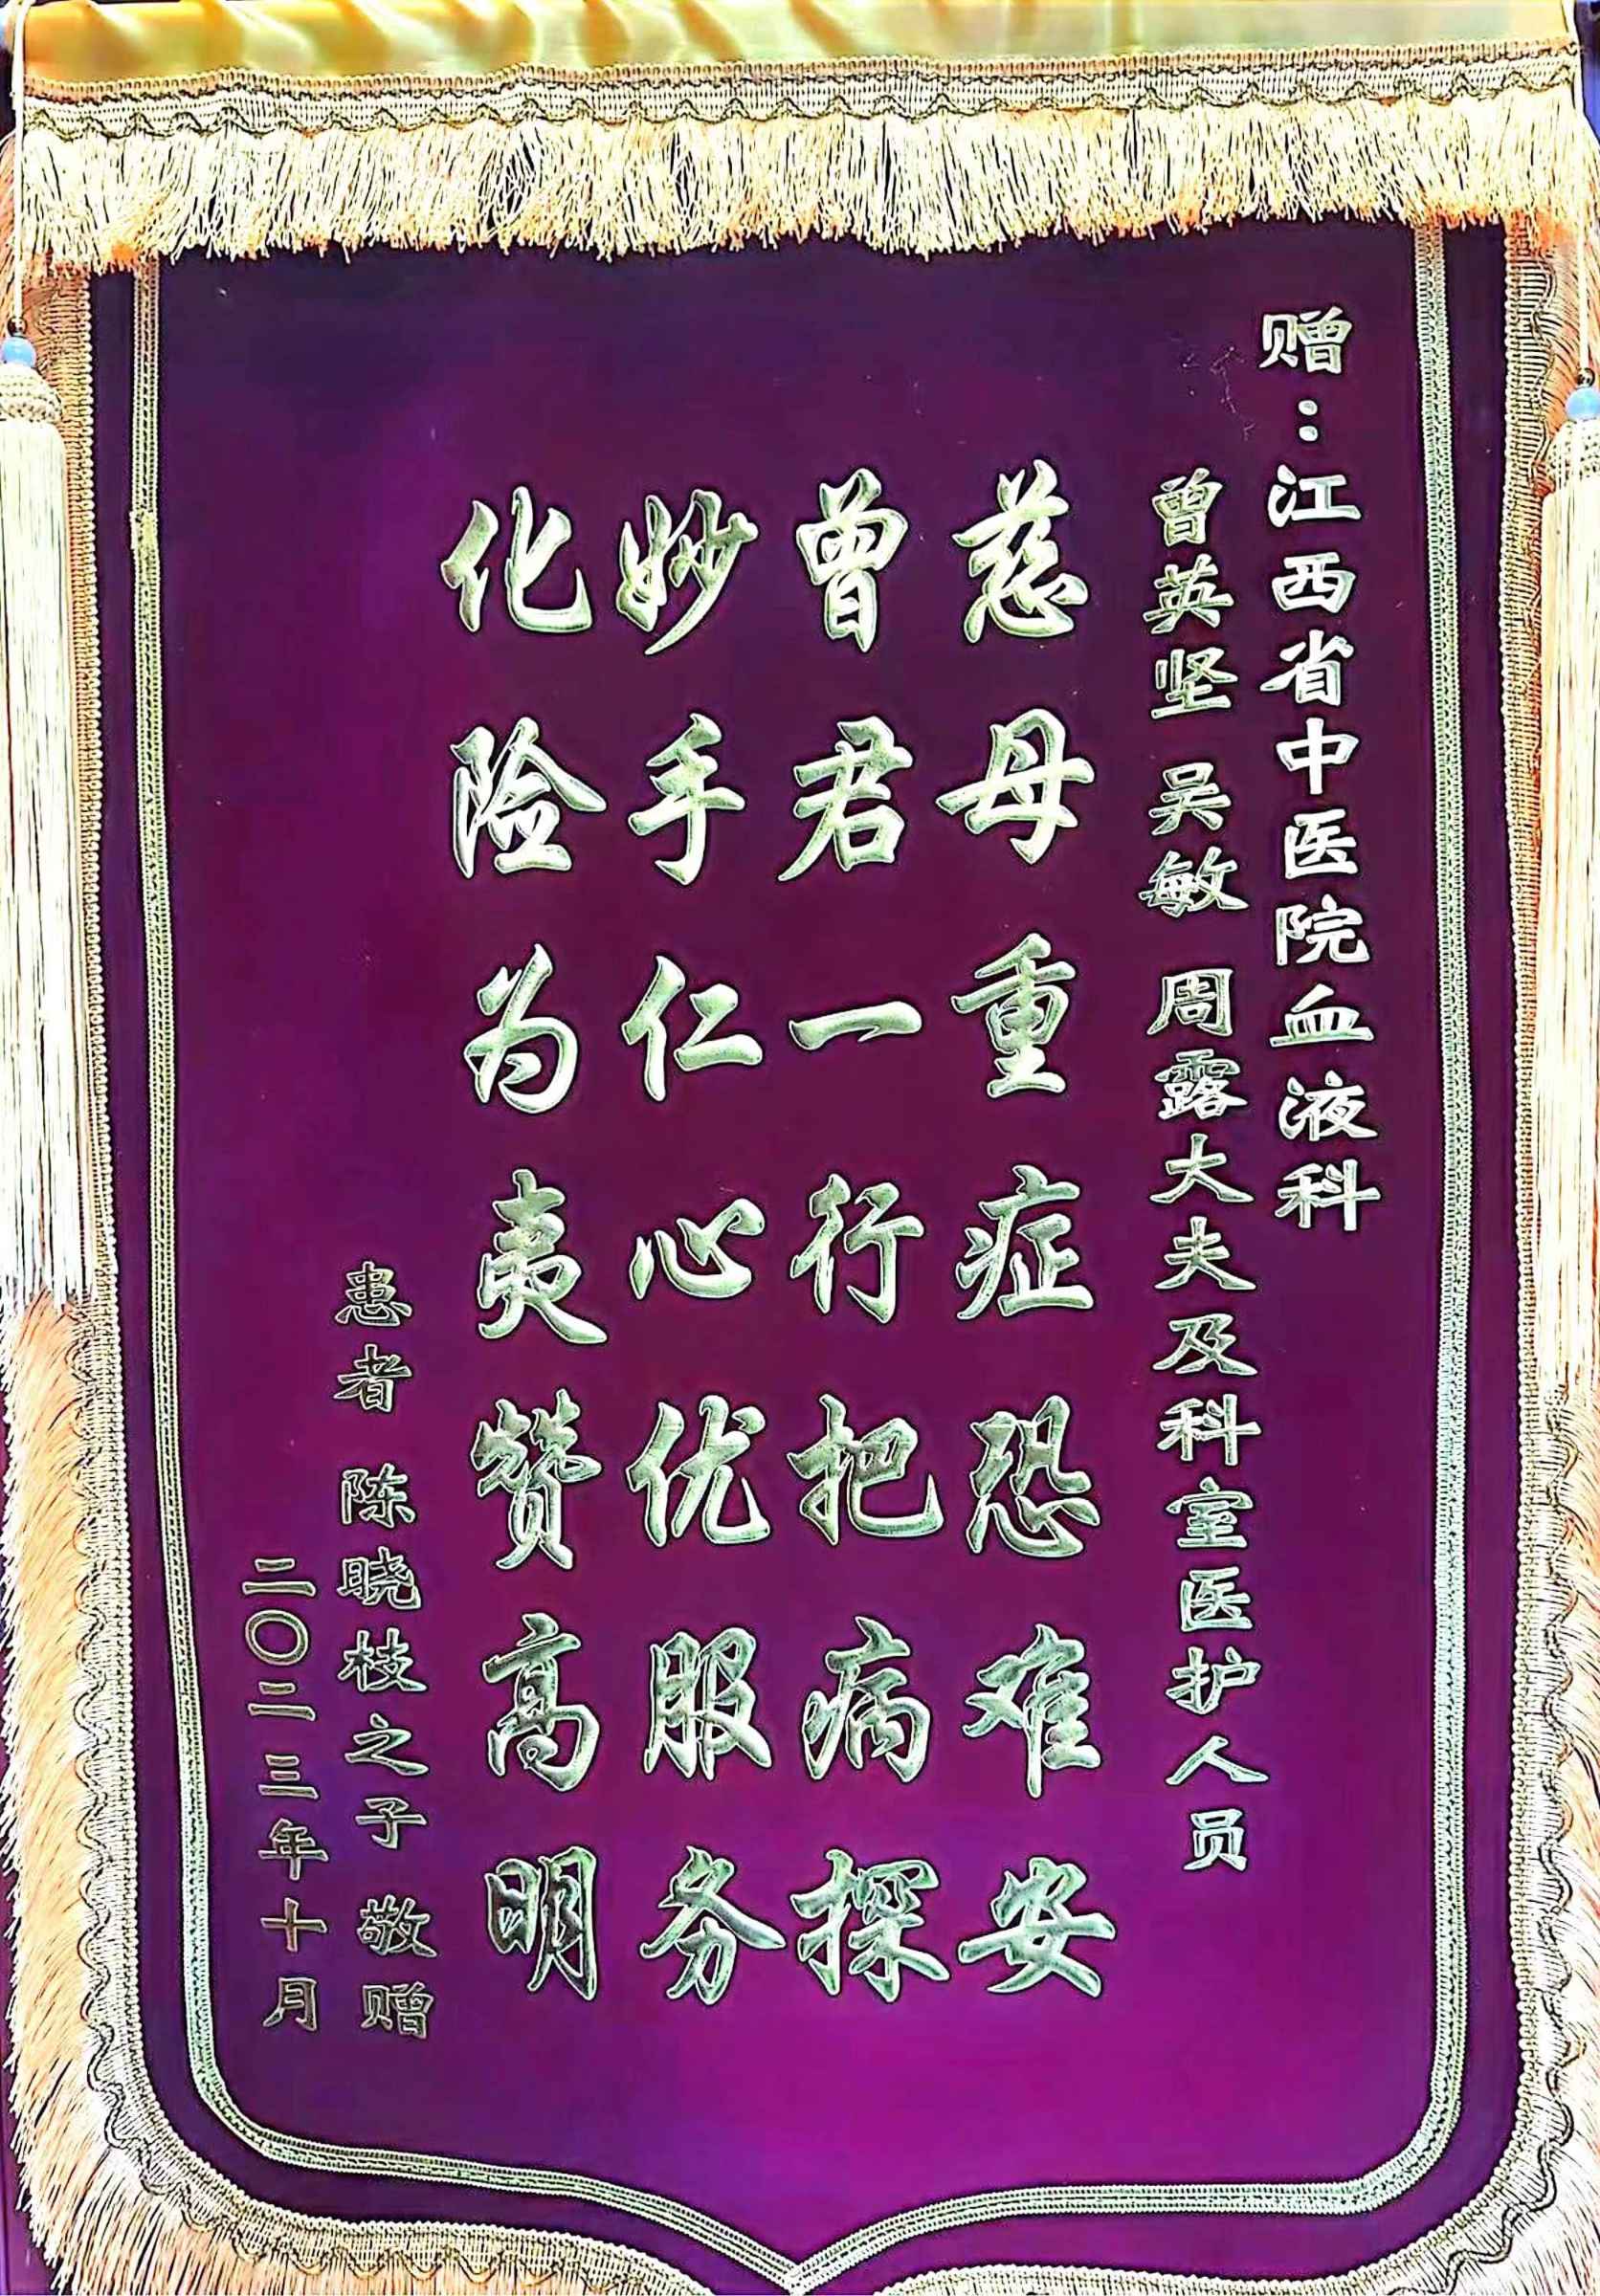 赠：江西省中医院血液科
曾英坚 吴敏 周露大夫及科室医护人员
慈母重症恐难安
曾君一行把病探
妙手仁心优服务
化险为夷赞高明
患者 陈晓枝之子 敬赠
二〇二三年十月